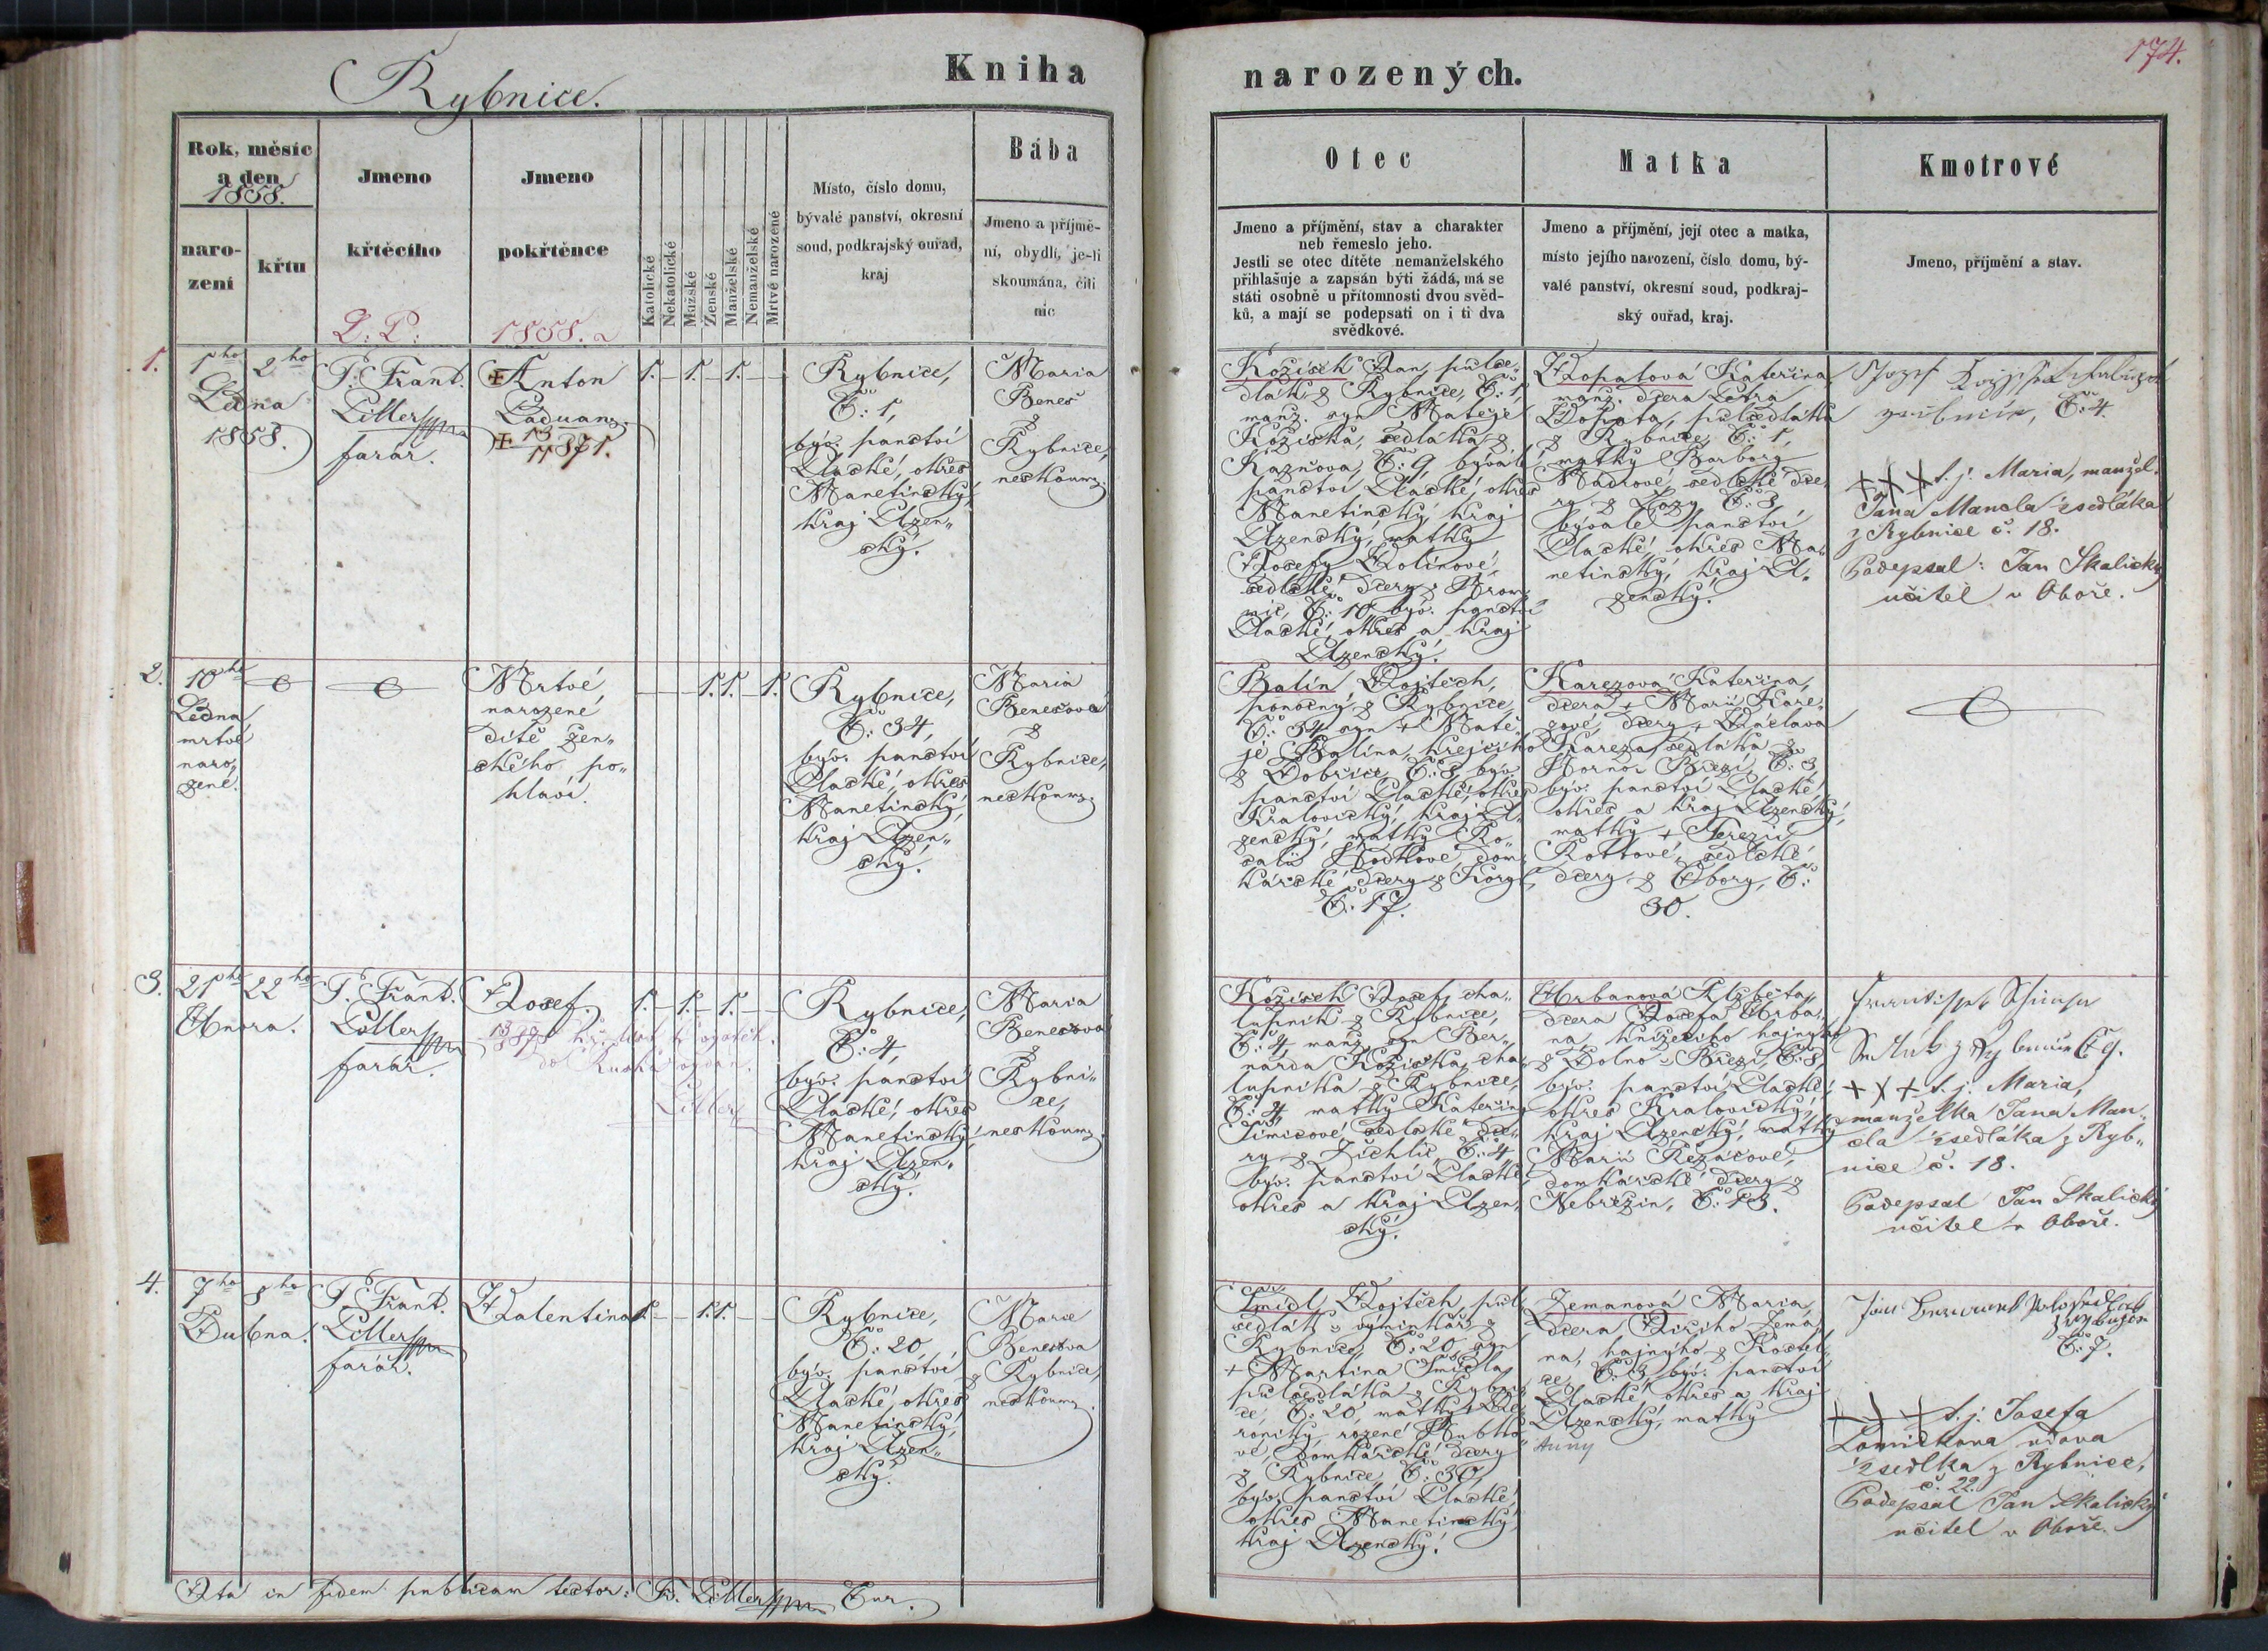 Rybnice.
Kniha
narozených.
174.
Rok, měsíc
a den
1858.
naro-
zení
křtu
Jmeno
křtěcího
L: P:
Jmeno
pokřtěnce
1858.
Katolické
Nekatolické
Mužské
Ženské
Manželské
Nemanželské
Mrtvě narozené
Místo, číslo domu,
bývalé panství, okresní
soud, podkrajský ouřad,
kraj
Bába
Jmeno a příjmě-
ní, obydlí, je-li
skoumána, čili
nic
Otec
Jmeno a příjmění, stav a charakter
neb řemeslo jeho.
Jestli se otec dítěte nemanželského
přihlašuje a zapsán býti žádá, má se
státi osobně u přítomnosti dvou svěd-
ků, a mají se podepsati on i ti dva
svědkové.
Matka
Jmeno a příjmění, její otec a matka,
místo jejího narození, číslo domu, bý-
valé panství, okresní soud, podkraj-
ský ouřad, kraj.
Kmotrové
Jmeno, příjmění a stav.
1.
1ho
2ho
Ledna
1858.
P. Frant.
Liller
farář.
Anton
13
11 871.
1. — 1. — 1. — —
Rybnice,
Č: 1,
býv. panství
Plaské, okres
Manetinský,
kraj Plzen„
ský.
Maria
Beneš
z
Rybnice,
neskoum.
Kožíšek Jan, půlse„
dlák z Rybnice, Č: 1,
manž. syn Matěje
Kožíška, sedláka z
Kaznova, Č: 9, bývalé
panství Plaské, okres
Manetinský, kraj
Plzenský, matky
Josefy Volínové,
sedlské dcery z
Č: 10, býv. panství
Plaské, okres a kraj
Plzenský.
Lopatová Kateřina,
manž. dcera
Lopata, půlsedláka
z Rybnice, Č: 1,
matky Barbory
sedlské dce„
ry z Lozy Č: 3
bývalé panství
Plaské, okres Ma„
netinský, kraj Pl„
zenský.
Č: 4.
+++ t. j. Maria, manžel.
Jana Mancla ½ sedláka
z Rybnice č. 18.
Podepsal: Jan Skalický
učitel v Oboře.
2.
10ho
Ledna
mrtvě
naro„
zené.
Mrtvé,
narozené
dítě žen„
ského po„
hlaví.
— — — 1. 1. — 1.
Rybnice,
Č: 34,
býv. panství
Plaské, okres
Manetinský,
kraj Plzen„
ský.
Maria
Benešová
z
Rybnice,
neskoum.
Balín Vojtěch,
ponocný z Rybnice,
Č: 34, syn + Matě„
je Balína, krejčího
z Dobřice, Č: 8, býv.
panství Plaské, okres
Kralovický, kraj Pl„
zenský, matky Ro„
salie Hodkové, dom„
kářské dcery z Hory
Č: 17.
Karezová Kateřina,
dcera + Marii Kare„
zové, dcery + Václava
Kareza, sedláka z
Horno Březí, Č: 3,
býv. panství Plaské,
okres a kraj Plzenský,
matky + Terezie
Kottové, sedlské
dcery z Obory, Č:
30.
3.
21ho
22ho
Února.
P. Frant.
Liller
farář.
Josef.
Liller
1. — 1. — 1. — —
Rybnice,
Č: 4,
býv. panství
Plaské, okres
Manetinský,
kraj Plzen„
ský.
Maria
Benešová
z
Rybni„
ce,
neskoum.
Kožíšek Josef, cha„
lupník z Rybnice,
Č: 4, manž. syn Ber„
narda Kožíška, cha„
lupníka z Rybnice,
Č: 4, matky Kateřiny
Šimicové, sedlské dce„
ry z Žichlic, Č: 4,
býv. panství Plaské,
okres a kraj Plzen„
ský.
Urbanová Alžběta,
dcera Josefa Urba„
na, knížecího hajného
z Dolno-Březí, Č: 8,
býv. panství Plaské,
okres Kralovický,
kraj Plzenský, matky
Marii Řezáčové,
domkářské dcery z
Nebřezin, Č: 13.
Sedlák z Rybnice Č 9.
+++ t. j. Maria,
manželka Jana Man„
cla ½ sedláka z Ryb„
nice č. 18.
Podepsal Jan Skalický
učitel v Oboře.
4.
7ho
8ho
Dubna.
P. Frant.
Liller
farář.
Valentina
1. — — 1. 1. — —
Rybnice,
Č: 20,
býv. panství
Plaské, okres
Manetinský,
kraj Plzen„
ský.
Marie
Benešova
z Rybnice,
neskoum.
Šmidl Vojtěch, půl„
sedlák - vyminkář z
Rybnice, Č: 20, syn
+ Martina Šmidla,
půlsedláka z Rybni„
ce, Č: 20, matky + Ve„
roniky, rozené Hubko„
vé, domkářské dcery
z Rybnice, Č: 30,
býv. panství Plaské,
okres Manetinský,
kraj Plzenský.
Zemanová Maria,
dcera Jiřího Zema„
na, hajného z Kostel„
ce, Č: 3, býv. panství
Plaské, okres a kraj
Plzenský, matky
Anny
Č: 7.
+++ t. j. Josefa
vdova
½ sedlka z Rybnice,
č. 22.
Podepsal Jan Skalický
učitel v Oboře.
Ita in fidem publicam testor: Fr. Liller Cur.